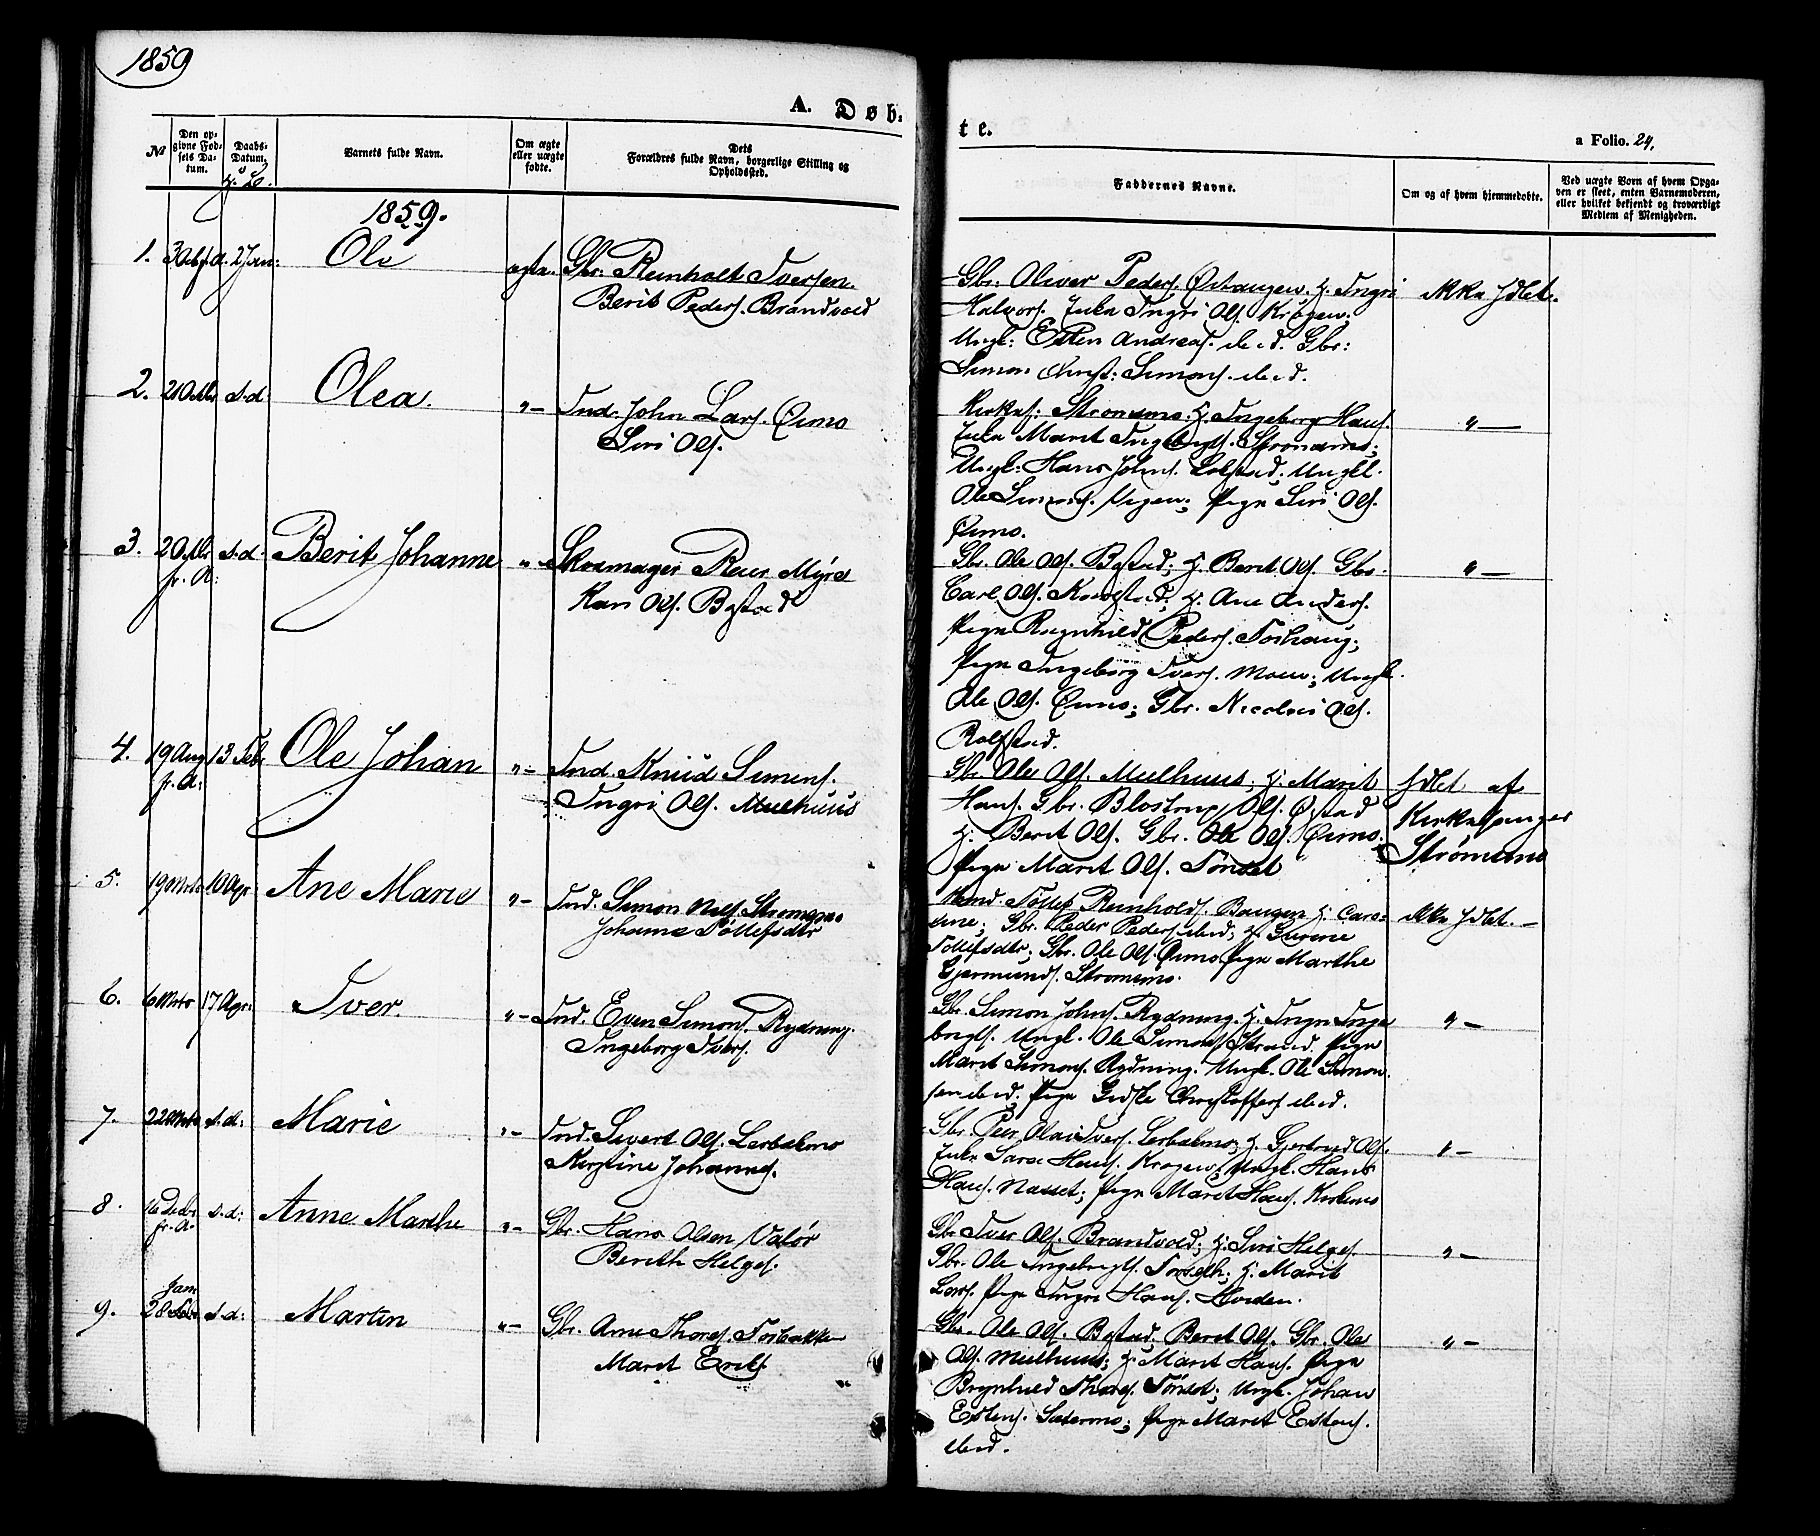 1859
A. Døb-
te.
a Folio. 24,
№
Den op-
givne Fød-
sels Da-
tum.
Daabs-
Datum.
Barnets fulde Navn.
Om ægte
eller uægte
fødte.
Dets
Forældres fulde Navn, borgerlige Stilling og
Opholdssted.
Faddernes Navne.
Om og af hvem hjemmedøbte.
Ved uægte Børn af hvem Opga-
ven er skeet, enten Barnemoderen,
eller hvilket bekjendt og troværdigt
Medlem af Menigheden.
1859.
1. 2 Jan: Ole ægte. Gbr. Reinholt Iversen.
Berit Peders. Brandvold
Gbr. Oliver Peders. H. Ingri
Halvors. Enke Ingri Ols. Krogen;
Ungk: Esten Andreas. ibid. Gbr:
Simon Simons. ibid.
Ikke Hdbt.
2. s.d. Olea. "- Ind. John Lars. Ørmo
Siri Ols.
Strømsmo. H. Ingeborg Hans.
Enke Marit Ingebrigts. Strømsmo;
Ungk: Hans Johns. Ungk.
Ole Simons. Pige Siri Ols.
Ørmo.
"-
3. s.d. Berit Johanne "- Skomager Myre
fr. A:
Kari Ols. Bøstad
Gbr. Ole Ols. Bøstad; H. Berit Ols. Gbr.
Carl Ols. H. Ane Anders.
Pige Ragnhild Peders. Torhaug;
Pige Ingeborg Ivers. Moen; Ungk.
Ole Ols. Ørmo; Gbr. Nicolai Ols.
Rolfstad.
"-
4. 19 Aug 13 Febr. Ole Johan "- Ind. Knud Simens.
fr. A:
Ingri Ols. Mulhuus
Gbr. Ole Ols. Mulhuus; H. Marit
Hans. Gbr. Ols. Øystad
H. Berit Ols. Gbr. Ole Ols. Ørmo.
Pige Marit Ols. Tønset
Hdbt af
Kirkesanger
Strømsmo
5. 19 Marts 10 Apr. Ane Marie "- Ind. Simon Nils. Strømsmo
Johanna Tollefsdtr
Tollef Reinholds. Baugen H. Caro-
line; Gbr. Peder Peders. ibid; H. Gurine
Tollefsdtr; Gbr. Ole Ols. Ørmo Pige Marthe
Gjermunds. Strømsmo.
Ikke Hdbt.-
6. 6 Marts 17 Apr. Iver. "- Ind. Even Simons. Rydning.
Ingeborg Ivers.
Gbr. Simon Johns. Rydning. H. Inge-
brigts. Ungk. Ole Simons. Strand. Pige
Marit Simons. Rydning. Ungk. Ole Simon-
sen ibid. Pige Gidske Christoffers. ibid.
"-
7. 22 Marts s.d: Marie "- Ind. Sivert Ols. Lerbakmo
Kirstine Johannes.
Gbr. Peer Olai Ivers. Lerbakmo; H. Gjertrud Ols.
Enke Sara Hans. Krogen; Ungk. Hans
Hans. Nasset; Pige Marit Hans. Kirkmo
"-
8. s.d: Anne Marthe "- Gbr. Hans Olsen Valør
fr. A.
Berith Helges.
Gbr. Iver Ols. Brandvold; H. Siri Helges.
Gbr. Ole Ingebrigts. H. Marit
Lars. Pige Ingri Hans. Hviden.
"-
9. 28 s.d: Martin "- Gbr. Arne Thores. Torbakken
Marit Eriks.
Gbr. Ole Ols. Bøstad. Berit Ols. Gbr. Ole
Ols. Mulhuus; H. Marit Hans. Pige
Brynhild Thores. Tønset; Ungk. Johan
Estens. Sætermo; Pige Marit Estens.
ibid.
"-